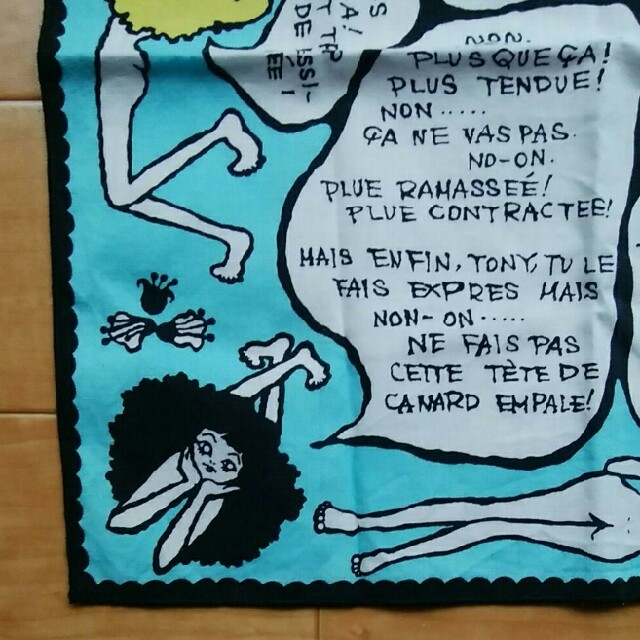 NON.
PLUS QUE ÇA!
PLUS TENDUE!
NON.....
ÇA NE VAS PAS.
NO-ON.
PLUE RAMASSEÉ!
PLUE CONTRACTEE!
MAIS ENFIN, TONY, TU LE
FAIS EXPRES MAIS
NON-ON.....
NE FAIS PAS
CETTE TÈTE DE
CANARD EMPALE!